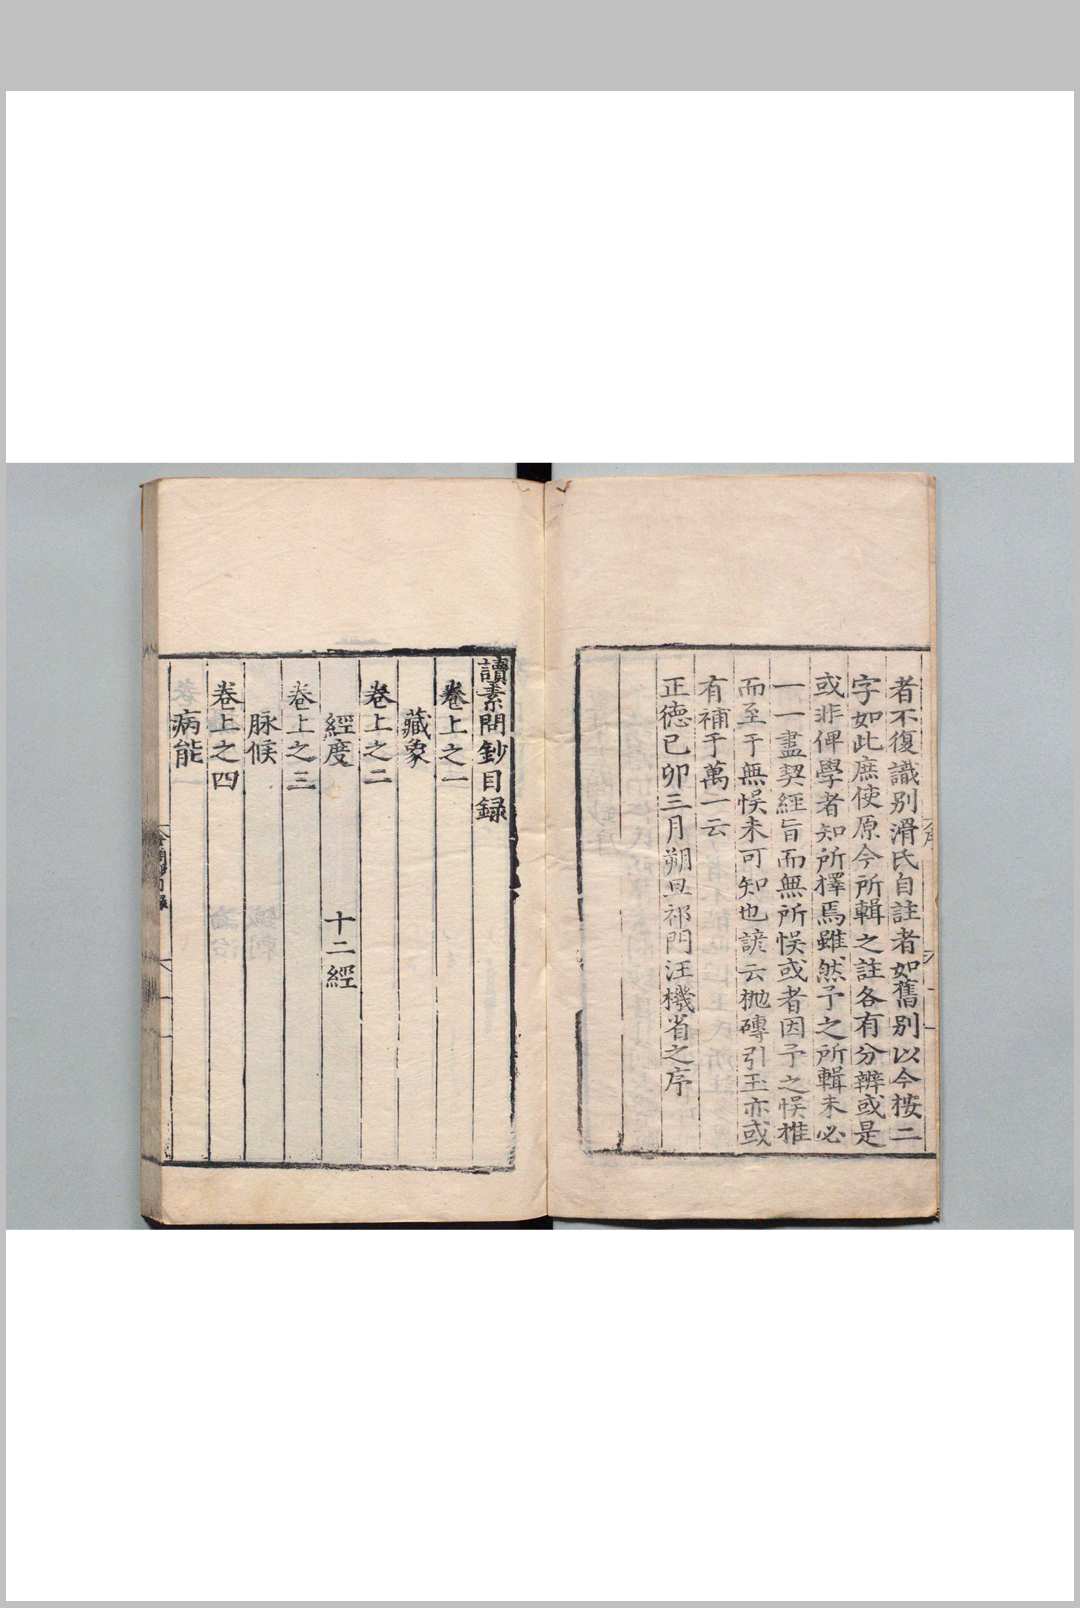 者不復識别滑氏自註者如舊别以今按二
字如此庶使原今所輯之註各有分辨或是
或非俾學者知所擇焉雖然予之所輯未必
一一盡契經旨而無所悮或者因予之悮推
而至于無悮未可知也諺云抛磚引玉亦或
有補于萬一云
正德己卯三月朔旦祁門汪機省之序
讀素問鈔目録
卷上之一
藏象
卷上之二
經度 十二經
卷上之三
脉候
卷上之四
病能